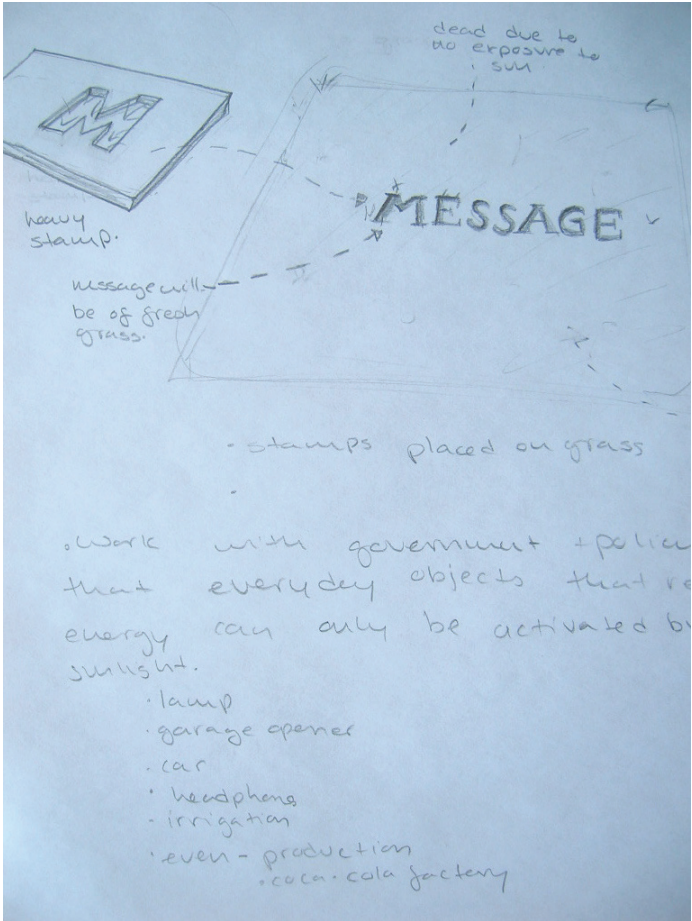 dead due to
no exposure to
sun
M
MESSAGE
heavy
stamp.
message will
be of fresh
grass.
• stamps placed on grass
•
• work with government + polic
that everyday objects that re
energy can only be activated by
sunlight.
• lamp
• garage opener
• car
• headphones
• irrigation
• even - production
• coca-cola factory